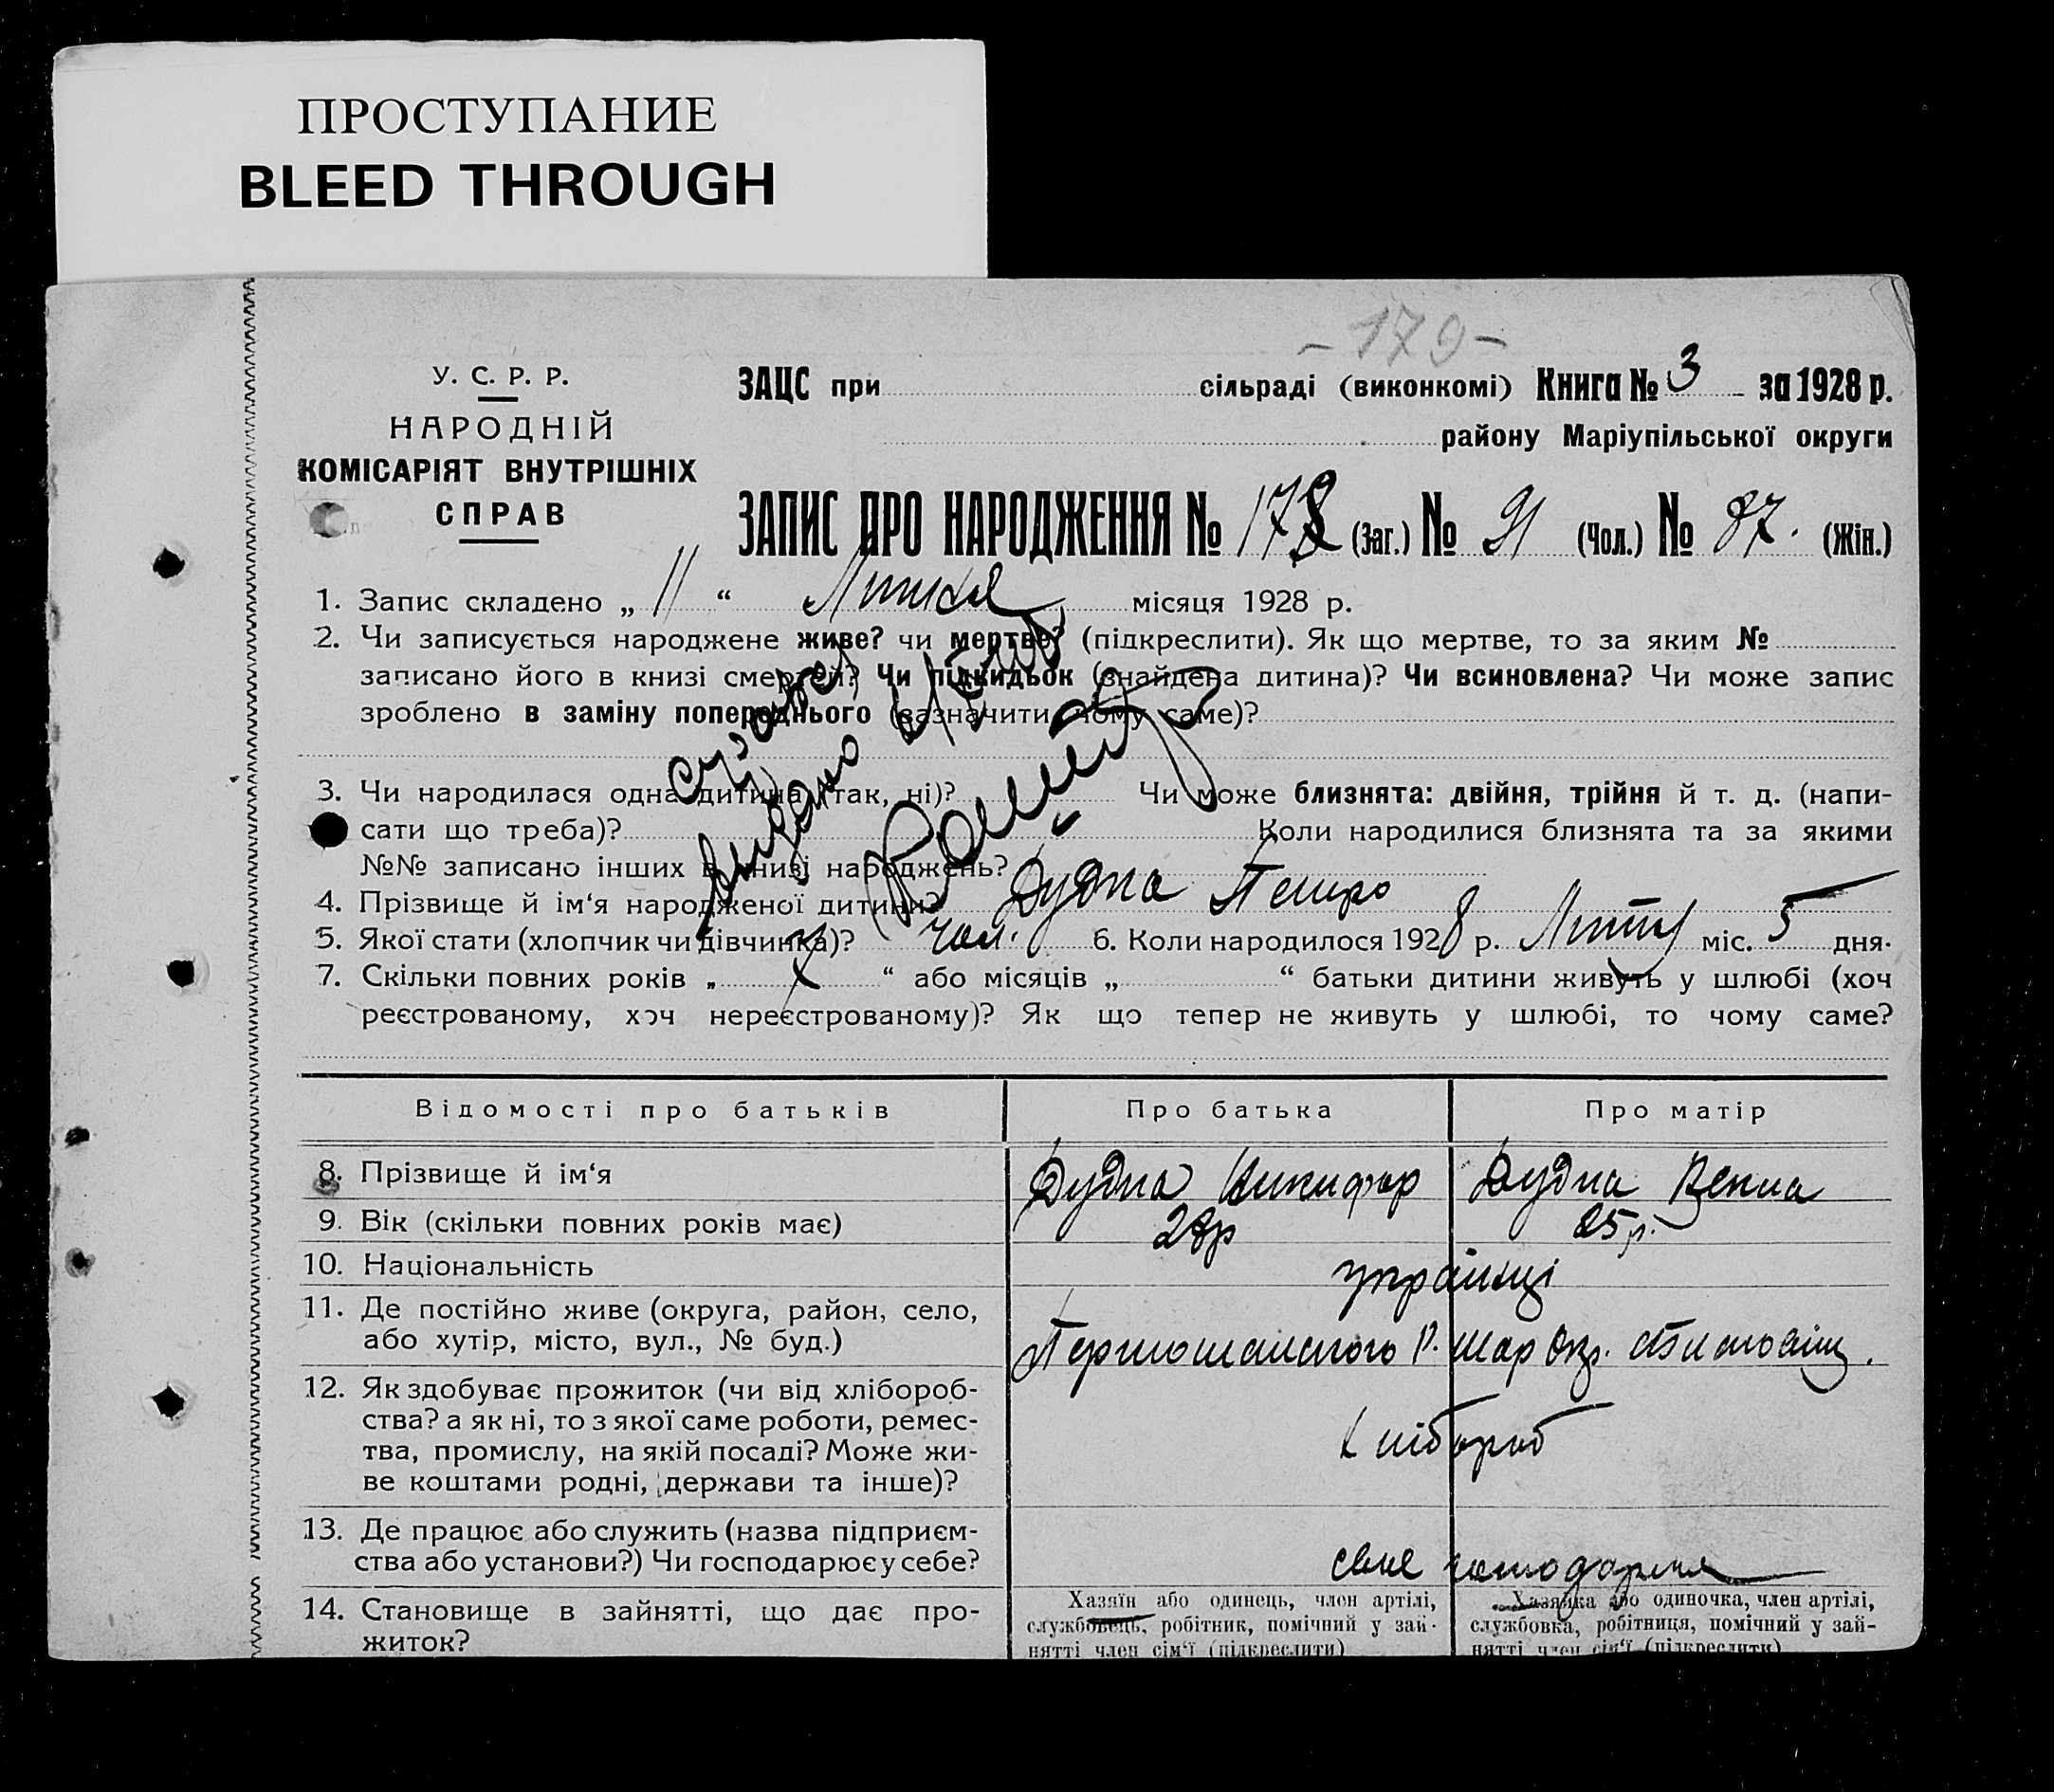 ПРОСТУПАНИЕ
BLEED THROUGH
- 179 -
У. С. Р. Р.
НАРОДНІЙ
КОМІСАРІЯТ ВНУТРІШНІХ
СПРАВ
ЗАЦС при сільраді (виконкомі) Книга № 3 за 1928 р.
району Маріупільської округи
ЗАПИС ПРО НАРОДЖЕННЯ № 178 (Заг.) № 91 (Чол.) № 87. (Жін.)
1. Запис складено „ 11 “ місяця 1928 р.
2. Чи записується народжене живе? чи мертве? (підкреслити). Як що мертве, то за яким №
записано його в книзі смертей? Чи підкидьок (знайдена дитина)? Чи всиновлена? Чи може запис
зроблено в заміну попереднього (зазначити, чому саме)?
3. Чи народилася одна дитина (так, ні)? Чи може близнята: двійня, трійня й т. д. (напи-
сати що треба)? Коли народилися близнята та за якими
№№ записано інших в книзі народжень?
4. Прізвище й ім‘я народженої дитини? Дудка Петро
5. Якої стати (хлопчик чи дівчинка)? чол. 6. Коли народилося 1928 р. міс. 5 дня.
7. Скільки повних років „ “ або місяців „ “ батьки дитини живуть у шлюбі (хоч
реєстрованому, хоч нереєстрованому)? Як що тепер не живуть у шлюбі, то чому саме?
видано
Відомості про батьків Про батька Про матір
8. Прізвище й ім‘я Дудка Никифор Дудка
9. Вік (скільки повних років має) 28р 25 р.
10. Національність українці
11. Де постійно живе (округа, район, село,
або хутір, місто, вул., № буд.) Р. Мар Окр.
12. Як здобуває прожиток (чи від хлібороб-
ства? а як ні, то з якої саме роботи, ремес-
тва, промислу, на якій посаді? Може жи-
ве коштами родні, держави та інше)? Хлібороб
13. Де працює або служить (назва підприєм-
ства або установи?) Чи господарює у себе? своє
14. Становище в зайнятті, що дає про-
житок?
Хазяїн або одинець, член артілі,
службовець, робітник, помічний у зай-
нятті член сім‘ї (підкреслити)
Хазяйка або одиночка, член артілі,
службовка, робітниця, помічний у зай-
нятті член сім‘ї (підкреслити)